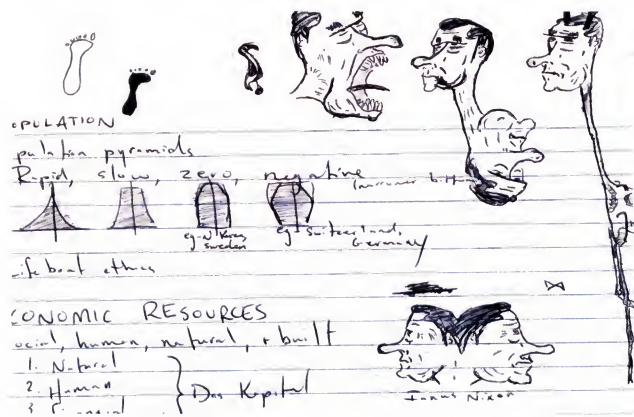 OPULATION
pulation pyramids
Rapid, slow, zero, negative
eg N Korea, Sweden
eg Switzerland, Germany
ifeboat ethics
CONOMIC RESOURCES
ocial, human, natural, + built
1. Natural
2. Human
3. Financial
Das Kapital
Janus Nixon